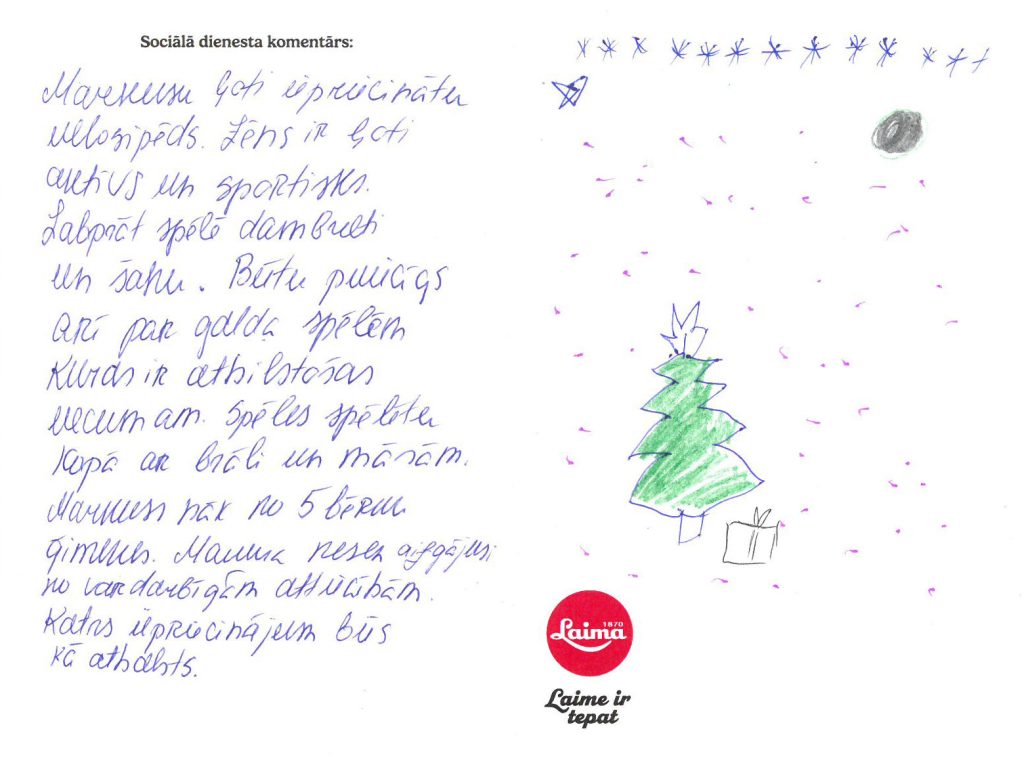 Sociālā dienesta komentārs:
Markusu ļoti iepriecinātu
velosipēds. Zēns ir ļoti
aktīvs un sportisks.
Labprāt spēlē dambreti
un šahu. Būtu priecīgs
arī par galda spēlēm
kuras ir atbilstošas
vecumam. Spēles spēlētu
kopā ar brāli un māsām.
Markuss nāk no 5 bērnu
ģimenes. Mamma nesen aizgājusi
no vardarbīgām attiecībām.
Katrs iepriecinājum būs
kā atbalsts.
1870
Laima
Laime ir
tepat